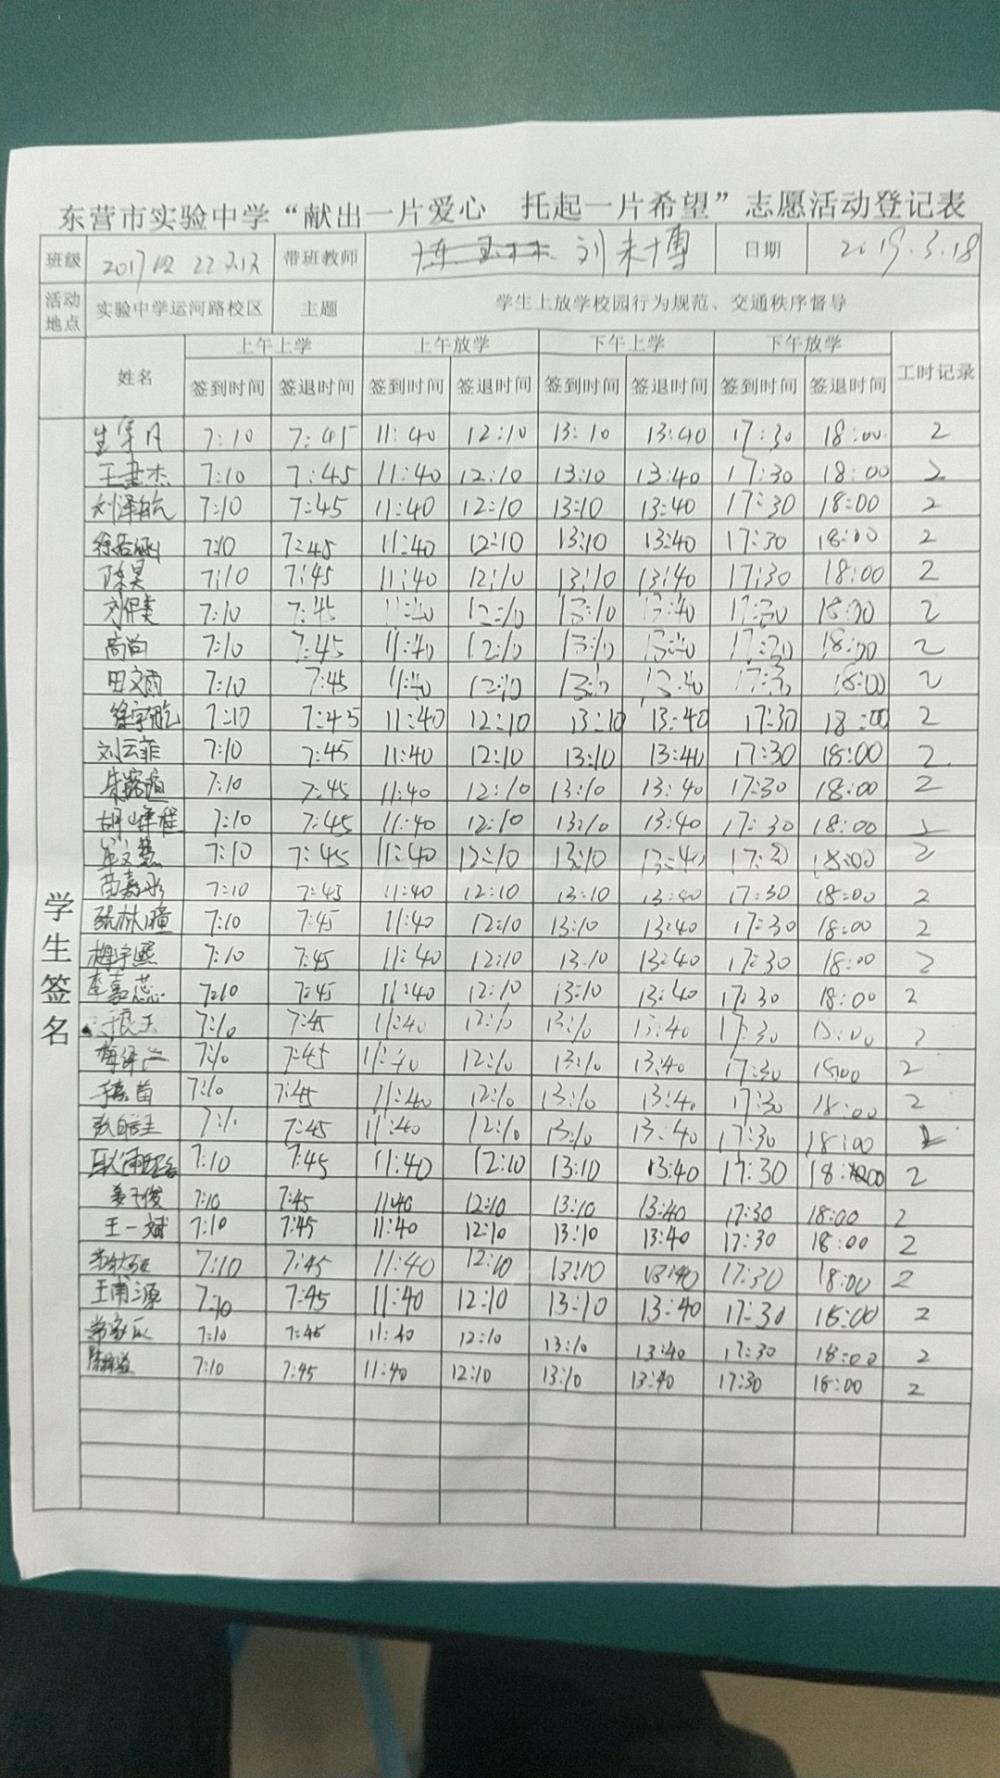 东营市实验中学“献出一片爱心 托起一片希望”志愿活动登记表
班级 2017级 22 带班教师 刘来博 日期 2019.3.18
活动地点 实验中学运河路校区 主题 学生上放学校园行为规范、交通秩序督导
上午上学 上午放学 下午上学 下午放学
姓名 签到时间 签退时间 签到时间 签退时间 签到时间 签退时间 签到时间 签退时间 工时记录
学生签名
7:10 7:45 11:40 12:10 13:10 13:40 17:30 18:00 2
王彦杰 7:10 7:45 11:40 12:10 13:10 13:40 17:30 18:00 2
刘泽航 7:10 7:45 11:40 12:10 13:10 13:40 17:30 18:00 2
7:10 7:45 11:40 12:10 13:10 13:40 17:30 18:00 2
陈昊 7:10 7:45 11:40 12:10 13:10 13:40 17:30 18:00 2
7:10 7:45 11:40 12:10 13:10 13:40 17:30 18:00 2
高尚 7:10 7:45 11:40 12:10 13:10 13:40 17:30 18:00 2
田文雨 7:10 7:45 11:40 12:10 13:10 13:40 17:30 18:00 2
徐宇航 7:10 7:45 11:40 12:10 13:10 13:40 17:30 18:00 2
刘云菲 7:10 7:45 11:40 12:10 13:10 13:40 17:30 18:00 2
7:10 7:45 11:40 12:10 13:10 13:40 17:30 18:00 2
胡峰 7:10 7:45 11:40 12:10 13:10 13:40 17:30 18:00 2
7:10 7:45 11:40 12:10 13:10 13:40 17:30 18:00 2
苗嘉 7:10 7:45 11:40 12:10 13:10 13:40 17:30 18:00 2
张林瞳 7:10 7:45 11:40 12:10 13:10 13:40 17:30 18:00 2
梅宇熙 7:10 7:45 11:40 12:10 13:10 13:40 17:30 18:00 2
李嘉蕊 7:10 7:45 11:40 12:10 13:10 13:40 17:30 18:00 2
7:10 7:45 11:40 12:10 13:10 13:40 17:30 18:00 2
7:10 7:45 11:40 12:10 13:10 13:40 17:30 18:00 2
7:10 7:45 11:40 12:10 13:10 13:40 17:30 18:00 2
7:10 7:45 11:40 12:10 13:10 13:40 17:30 18:00 2
7:10 7:45 11:40 12:10 13:10 13:40 17:30 18:00 2
姜子俊 7:10 7:45 11:40 12:10 13:10 13:40 17:30 18:00 2
王一斌 7:10 7:45 11:40 12:10 13:10 13:40 17:30 18:00 2
7:10 7:45 11:40 12:10 13:10 13:40 17:30 18:00 2
王甫源 7:10 7:45 11:40 12:10 13:10 13:40 17:30 18:00 2
7:10 7:45 11:40 12:10 13:10 13:40 17:30 18:00 2
7:10 7:45 11:40 12:10 13:10 13:40 17:30 18:00 2